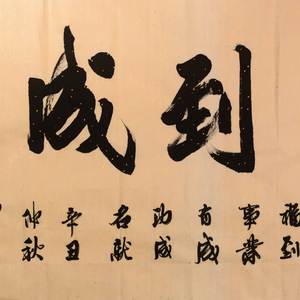 到成
福到
事業
有成
功成
名就
辛丑
仲秋